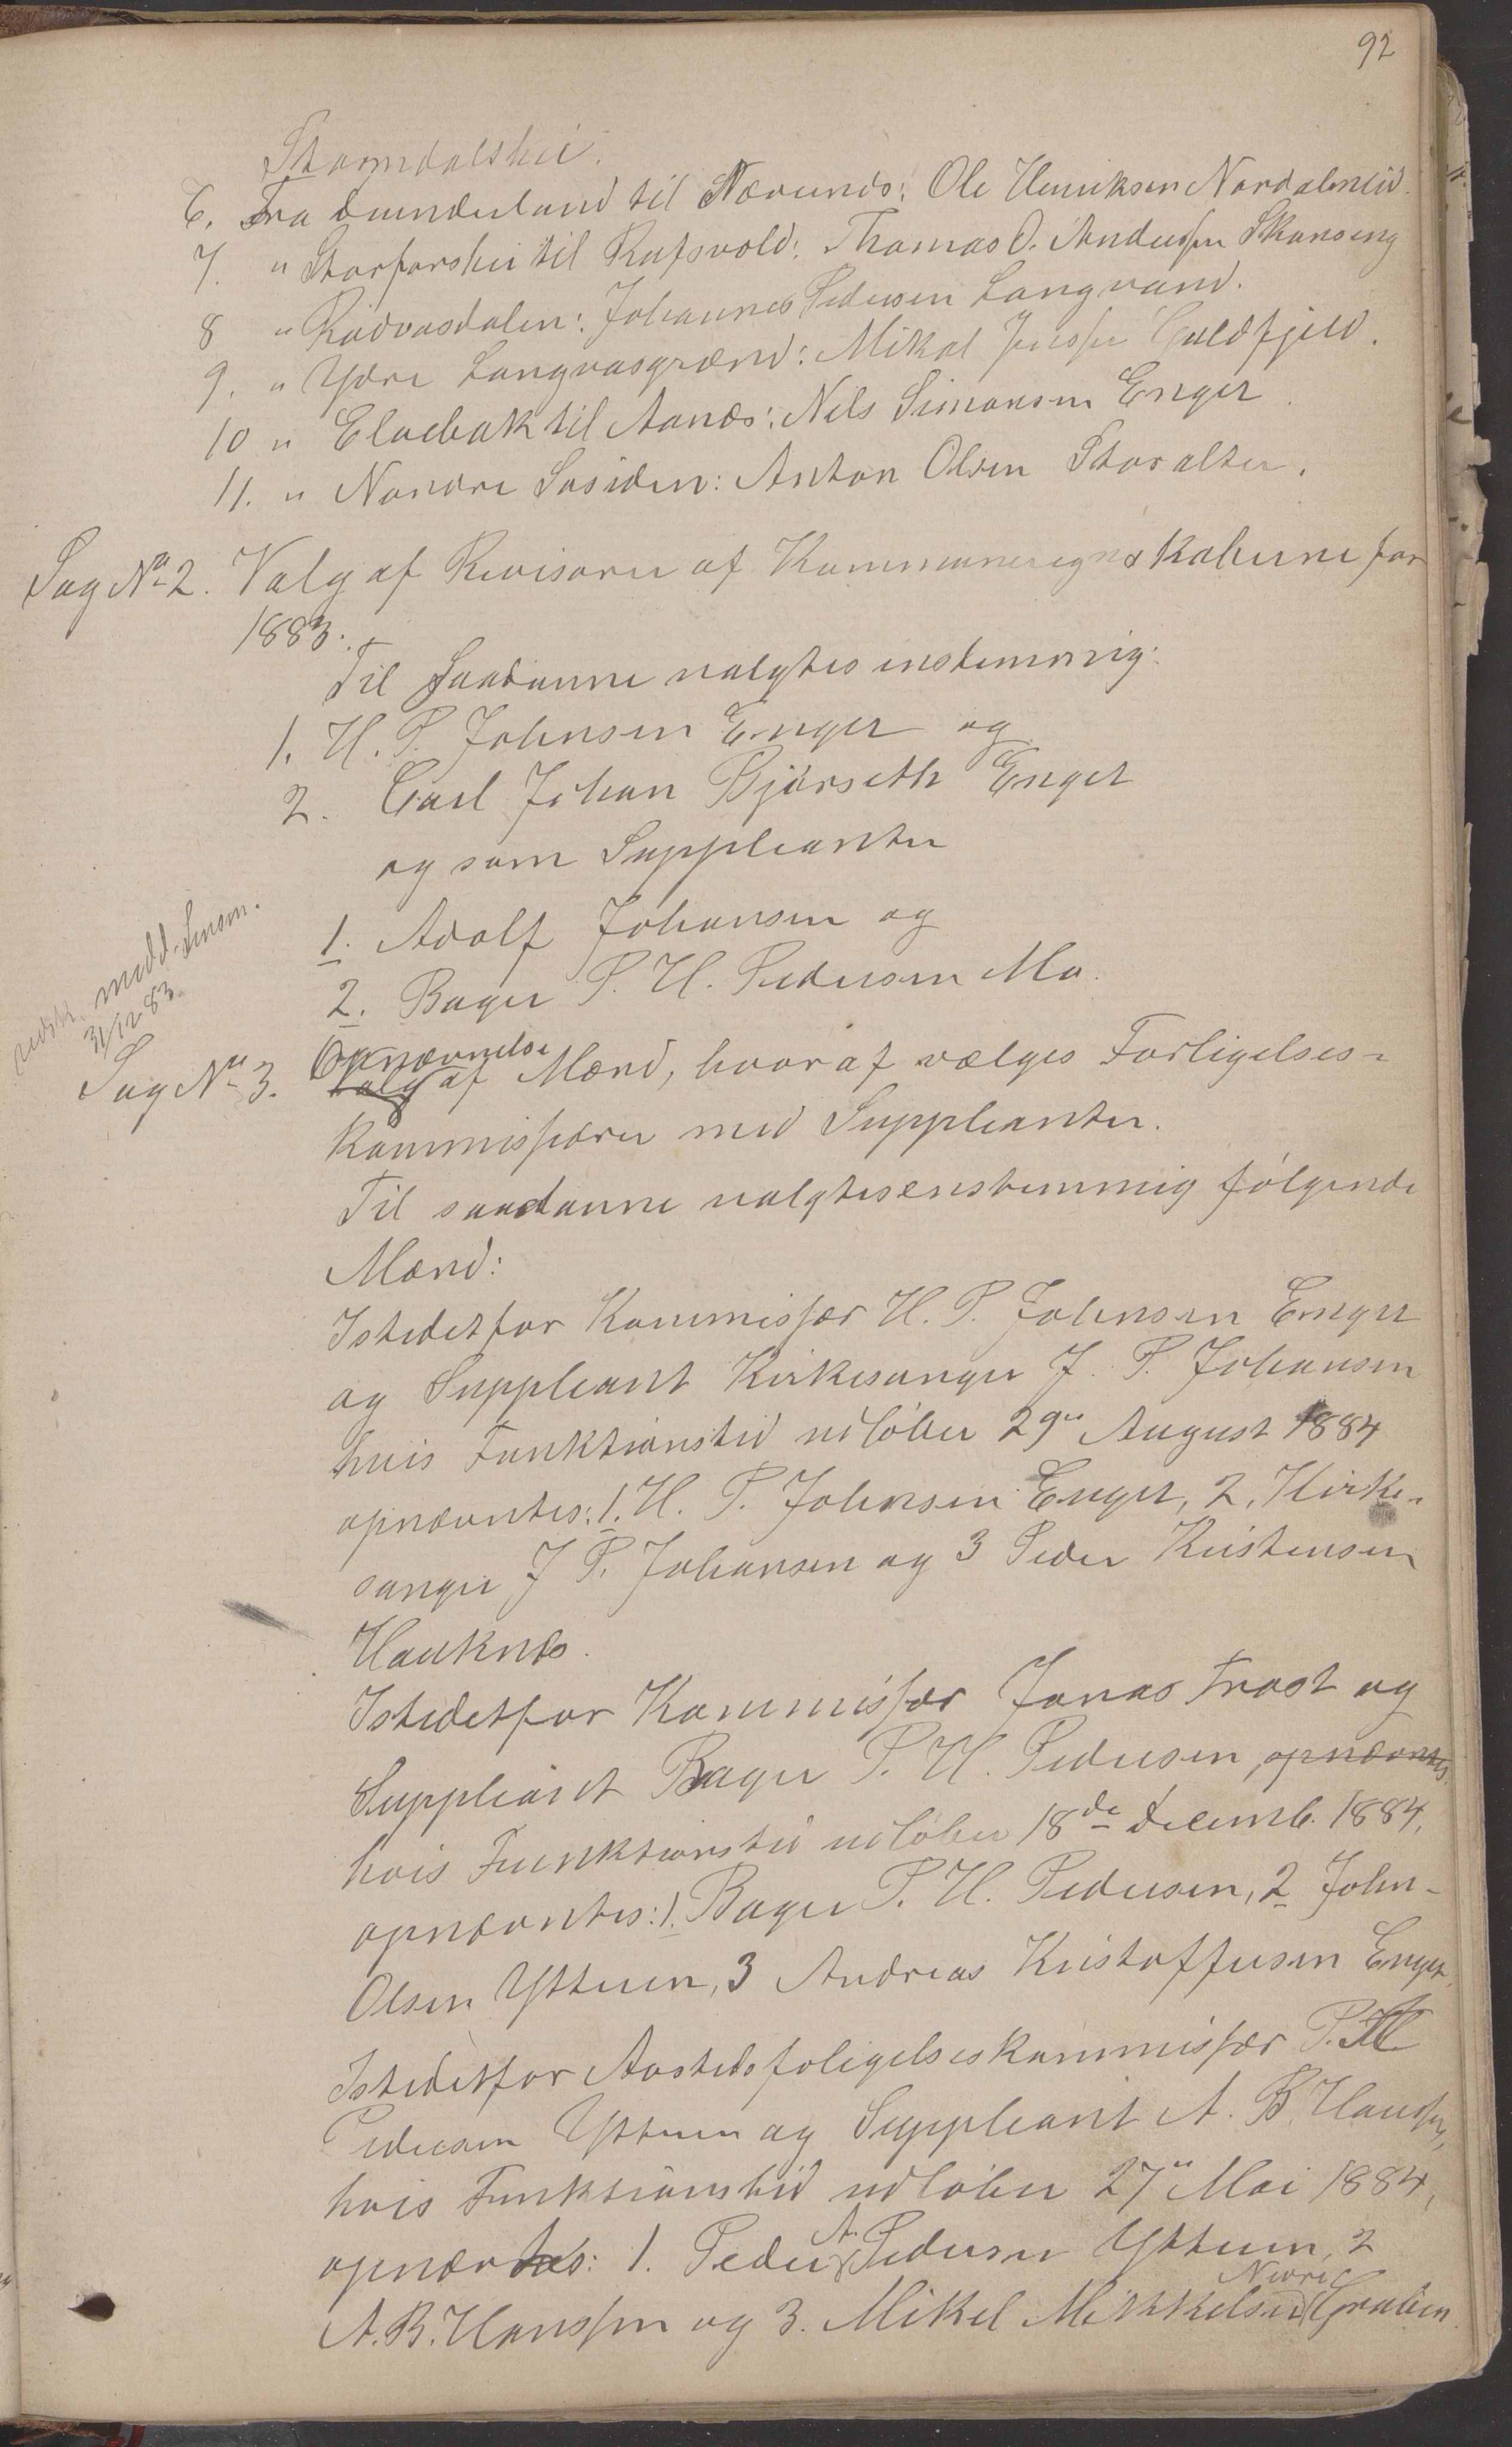 92
Stormdalshei.
6. Fra Dunderland til Nævernæs: Ole Henriksen Nordalenlid.
7. " Storforshei til Rufsvold: Thomas O. Anderssen Skanseng
8 " Rødvasdalen: Johannes Pedersen Langvand.
9. " Ydre Langvasgrænd: Mikal Jenssen Guldfjeld.
10 " Elvebak til Aanæs: Nils Simonsen Enger.
11. " Nordre Søsiden: Anton Olsen Storalter.
Sag No 2. Valg af Revisorer af Kommuneregnskaberne for
1883.
Til Saadanne valgtes enstemmig:
1. H. P. Johnsen Enger og
2. Carl Johan Bjørseth Enget
og som Suppleanter
1. Adolf Johansen og
2. Bager P. H. Pedersen Mo.
udsk. medd. Lensm.
31/12 83.
Sag No 3. Opnævnelse
Valg af Mænd, hvoraf vælges Forligelses-
kommissærer med Suppleanter.
Til saadanne valgtes enstemmig følgende
Mænd:
Istedetfor Kommissær H. P. Johnsen Enger
og Suppleant Kirkesanger J. P. Johansen
hvis Funktionstid udløber 29de August 1884
opnævntes: 1. H. P. Johnsen Enget, 2. Kirke-
sanger J P. Johansen og 3 Peder Kristensen
Hauknæs.
Istedetfor Kommissær Jonas Trost og
Suppleant Bager P. H. Pedersen, opnævntes
hvis Funktionstid udløber 18de Decemb. 1884,
opnævntes: 1. Bager P. H. Pedersen, 2 John-
Olsen Ytteren, 3 Andreas Kristoffersen Enger.
Istedetfor Aastedsfoligelseskommissær P. A.
Pedersen Ytteren og Suppleant A. B. Hanssen,
hvis Funktionstid udløber 27de Mai 1884,
opnævntes: 1. Peder A. Pedersen Ytteren, 2
A. B. Hanssen og 3. Mikel Mikkelsen Nedre Gruben